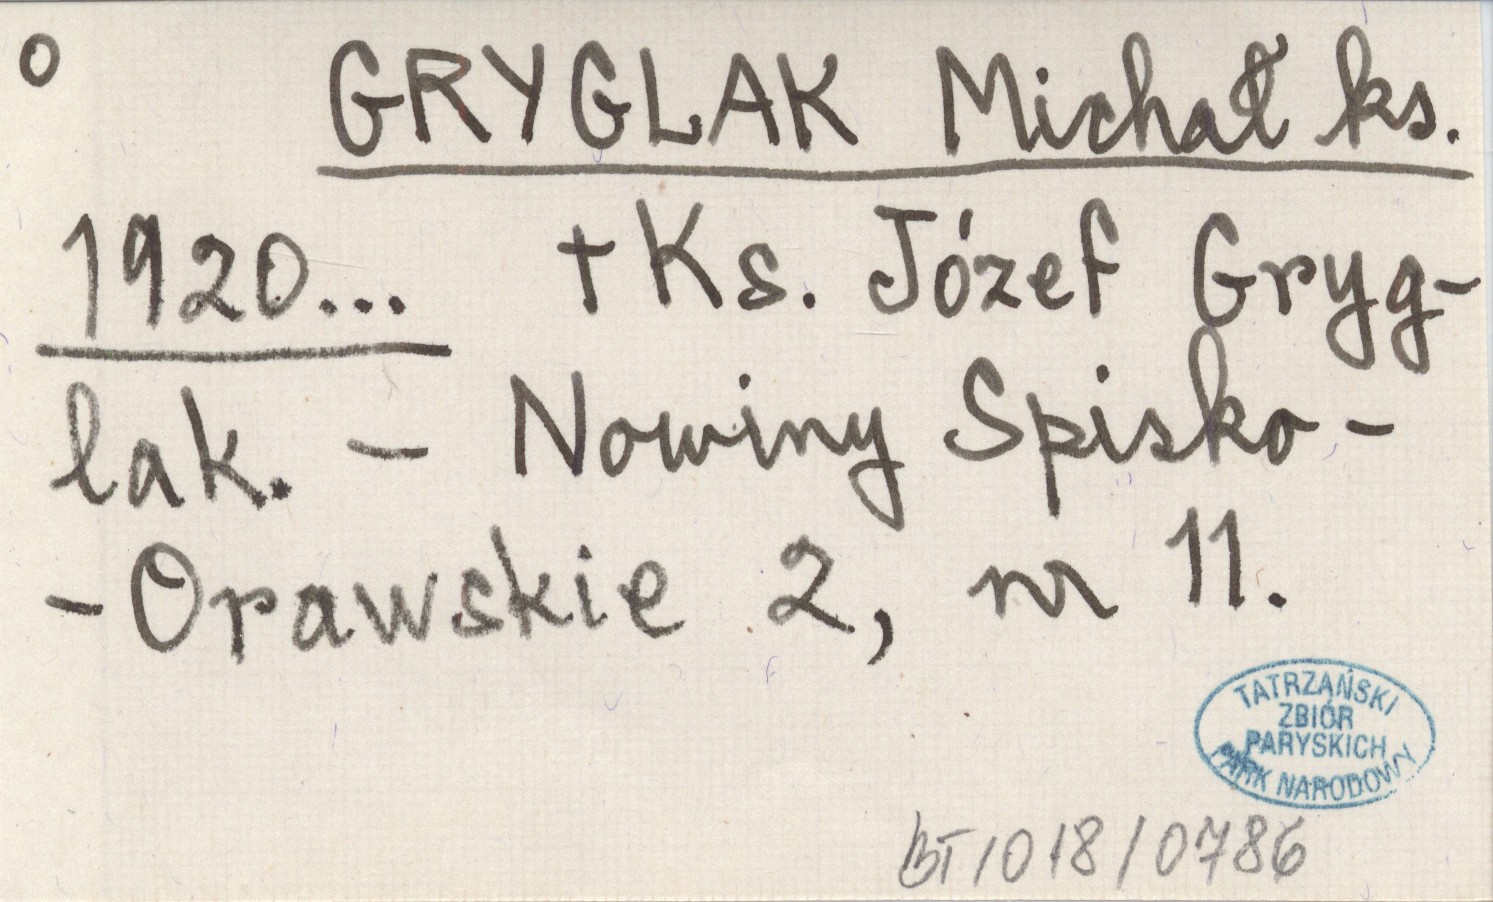 o GRYGLAK Michał ks.
1920... + Ks. Józef Gryg-
lak. - Nowiny Spisko -
- Orawskie 2, nr 11.
TATRZAŃSKI
ZBIÓR
PARYSKICH
PARK NARODOWY
BT/018/0786